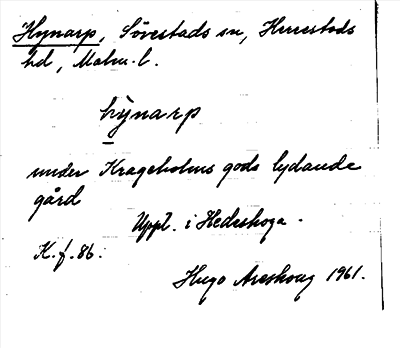 Hynarp, Sövestads sn, Herrestads
hd, Malm. l.
hỳnarp
under Krageholms gods lydande
gård
Uppt. i Hedeskoga.
K. f. 86.
Hugo Areskoug 1961.